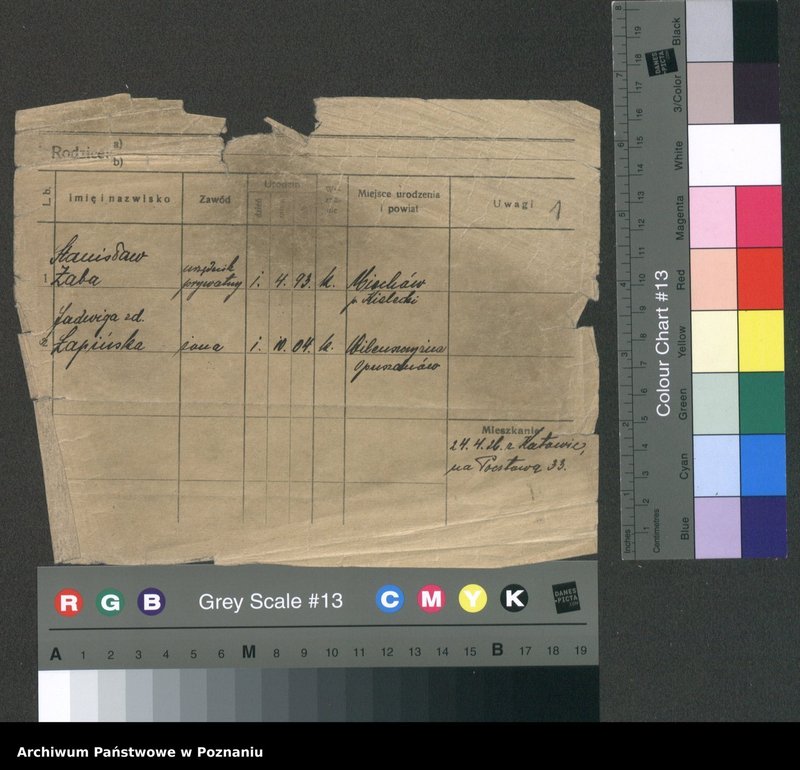 Rodzice: a)
b)
L. b.
Imię i nazwisko
Zawód
Urodzin
dzień
Miejsce urodzenia
i powiat
Uwagi
1
Stanisław
1 Żaba
urzędnik
prywatny
1. 4. 93. k.
Miechów
p. Kielecki
Jadwiga zd.
2. Łapińska
żona
1. 10. 04. k.
Mieszkanie
24. 4. 26. z Katowic,
na Pocztową 33.
Inches
Centimetres
Colour Chart #13
Blue
Cyan
Green
Yellow
Red
Magenta
White
3/Color
Black
DANES
-PICTA
.COM
R G B
Grey Scale #13
C M Y K
DANES
-PICTA
.COM
A 1 2 3 4 5 6 M 8 9 10 11 12 13 14 15 B 17 18 19
Archiwum Państwowe w Poznaniu